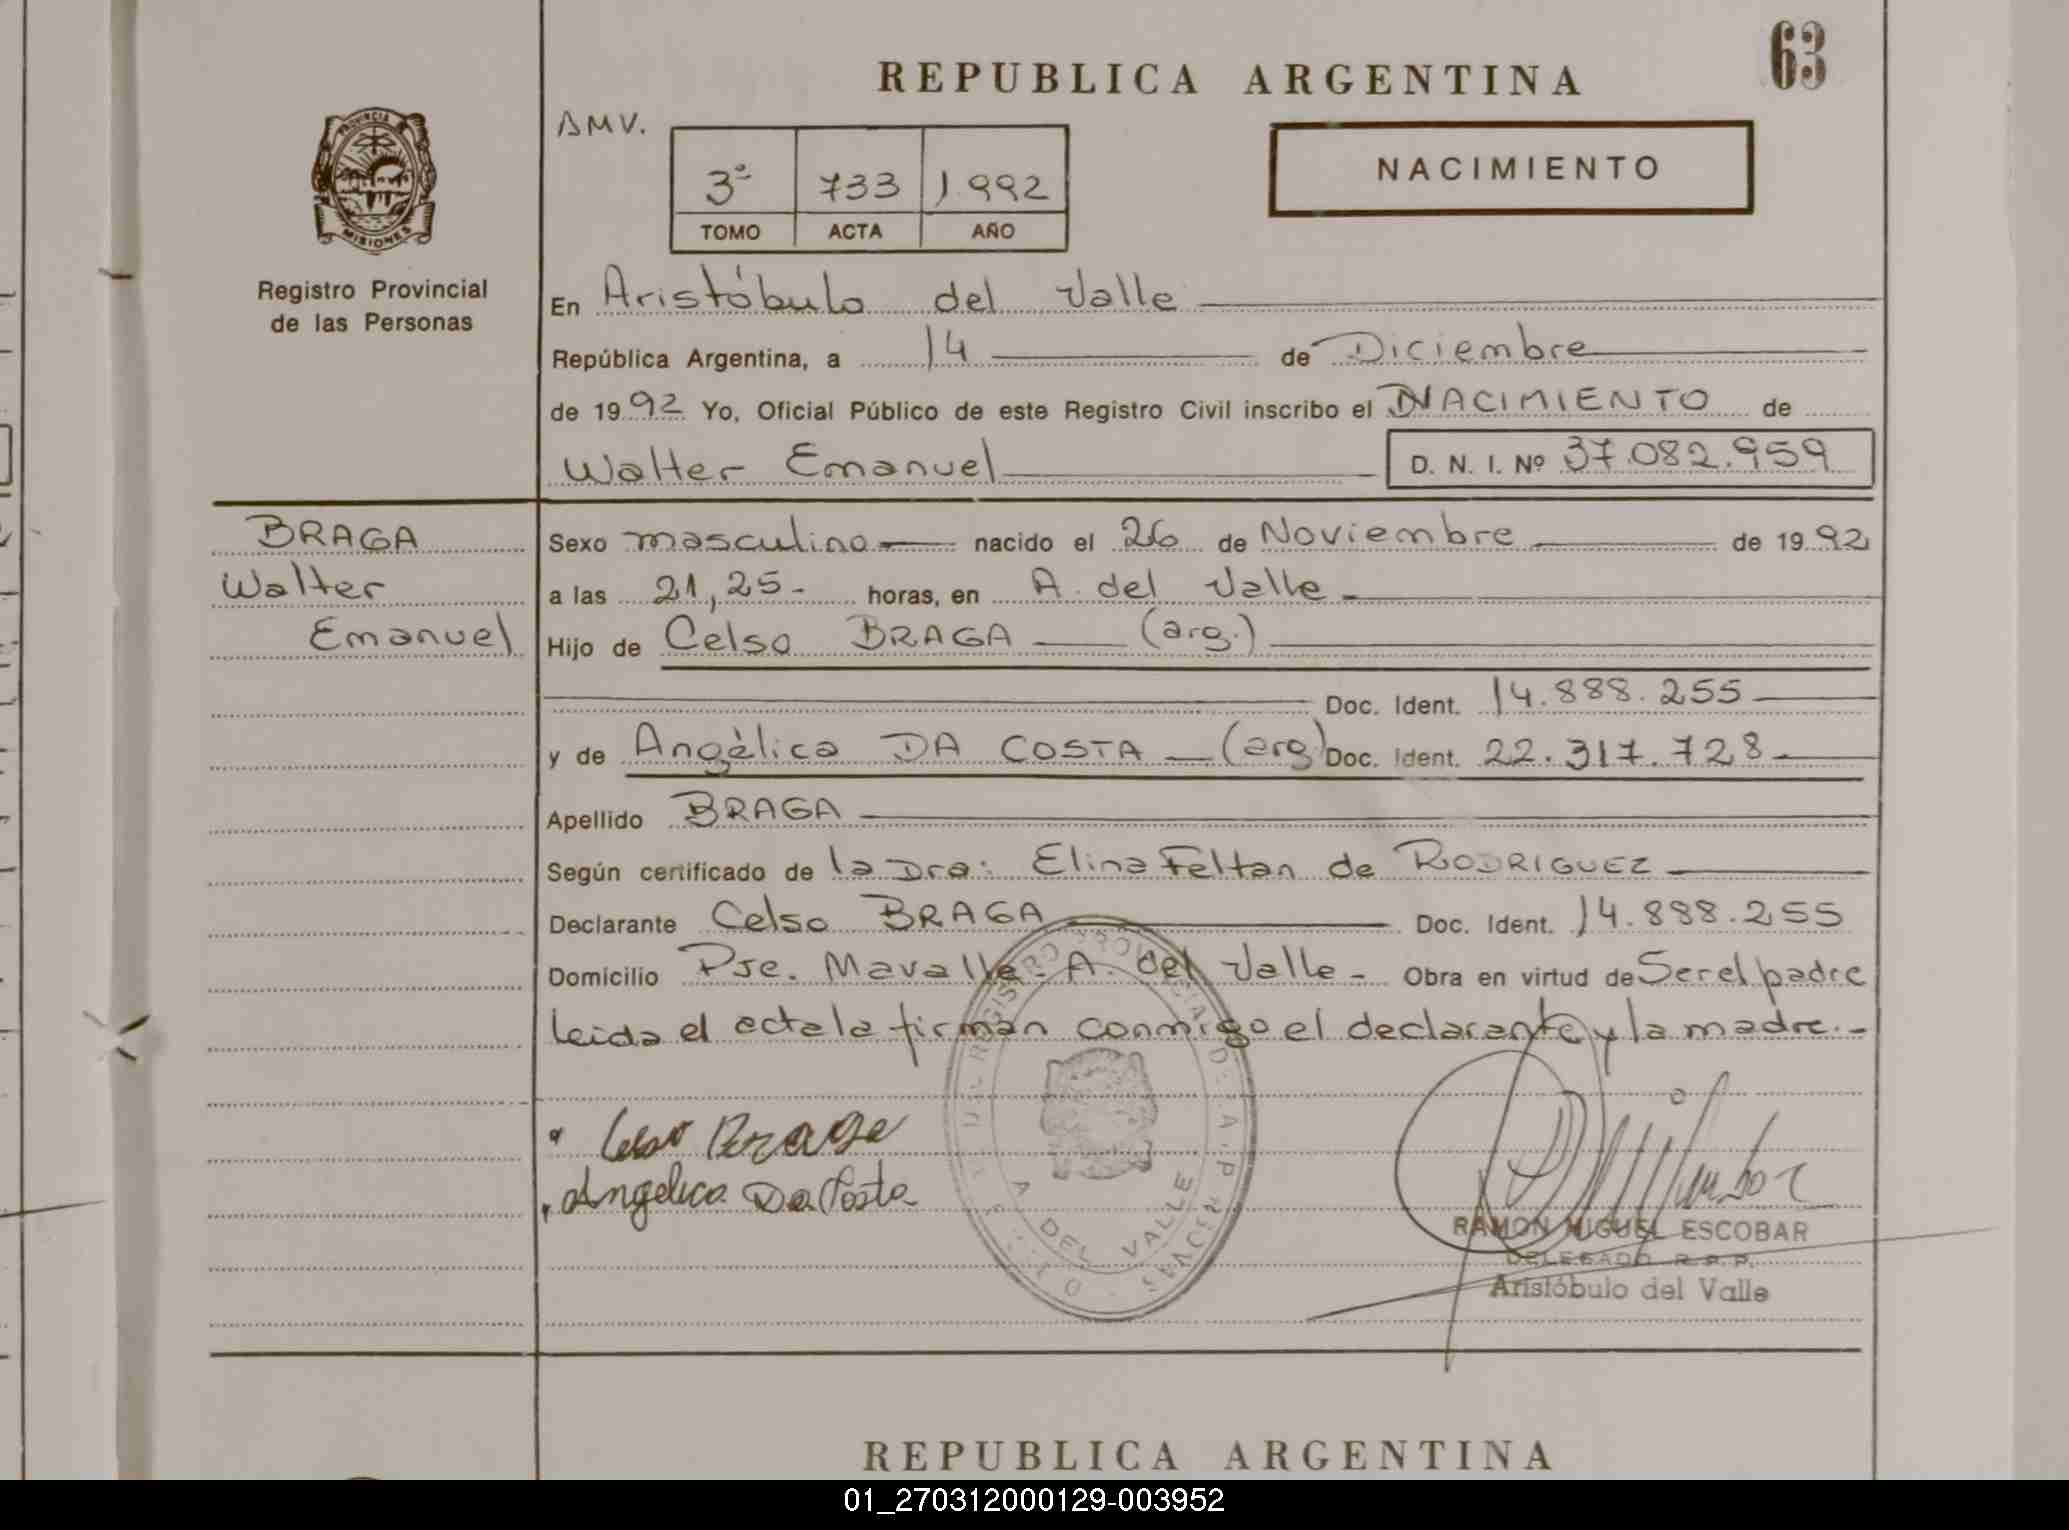 63
REPUBLICA ARGENTINA
AMV.
PROVINCIA DE
MISIONES
3º 733 1.992
TOMO ACTA AÑO
NACIMIENTO
Registro Provincial
de las Personas
En Aristóbulo del Valle
República Argentina, a 14 de Diciembre
de 1992 Yo, Oficial Público de este Registro Civil inscribo el NACIMIENTO de
Walter Emanuel D. N. I. Nº 37.082.959
BRAGA
Walter
Emanuel
Sexo masculino nacido el 26 de Noviembre de 1992
a las 21,25- horas, en A. del Valle
Hijo de Celso BRAGA (arg.)
Doc. Ident. 14.888.255
y de Angélica DA COSTA (arg) Doc. Ident. 22.317.728
Apellido BRAGA
Según certificado de la Dra: Elina Feltan de RODRIGUEZ
Declarante Celso BRAGA Doc. Ident. 14.888.255
Domicilio Pje. Mavalle- A. del Valle- Obra en virtud de Ser el padre
leida el acta la firman conmigo el declarante y la madre.-
Celso Braga
Angelica Da Costa
A DEL VALLE
RAMON MIGUEL ESCOBAR
DELEGADO R.P.P.
Aristóbulo del Valle
REPUBLICA ARGENTINA
01_270312000129-003952